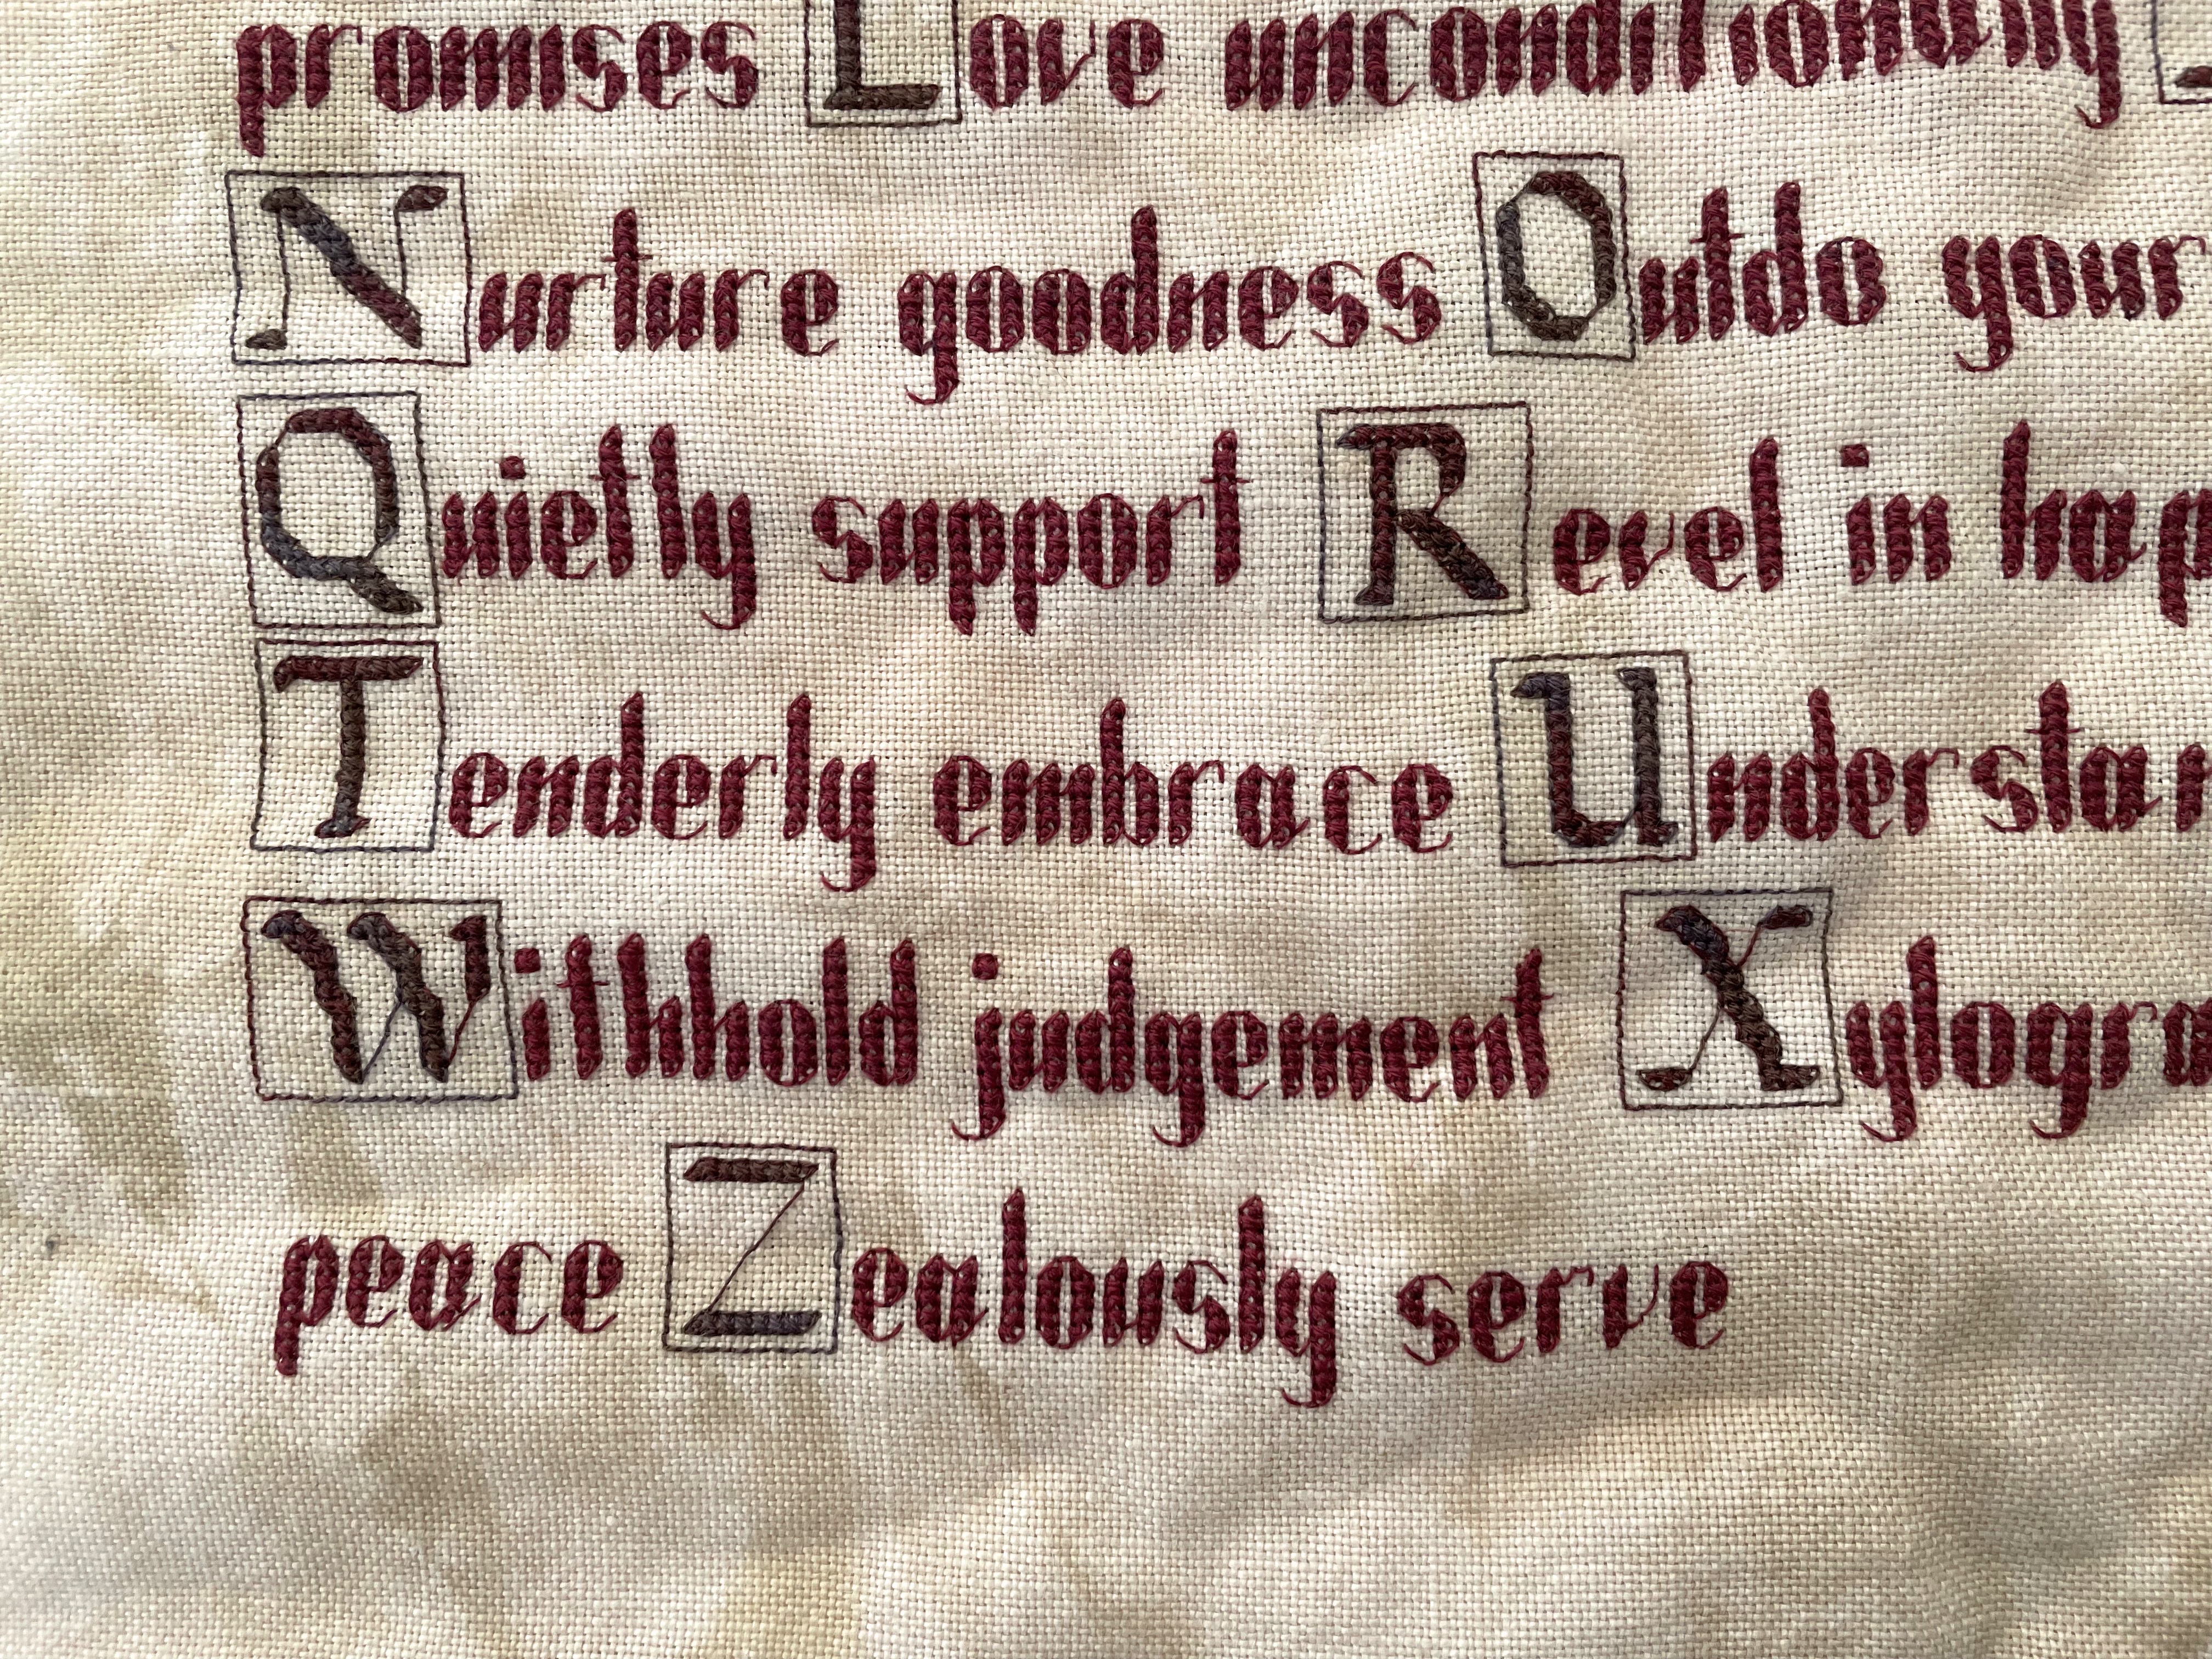 promises Love unconditionally
Nurture goodness Outdo your
Quietly support Revel in hap
Tenderly embrace Understan
Withhold judgement Xylogra
peace Zealously serve